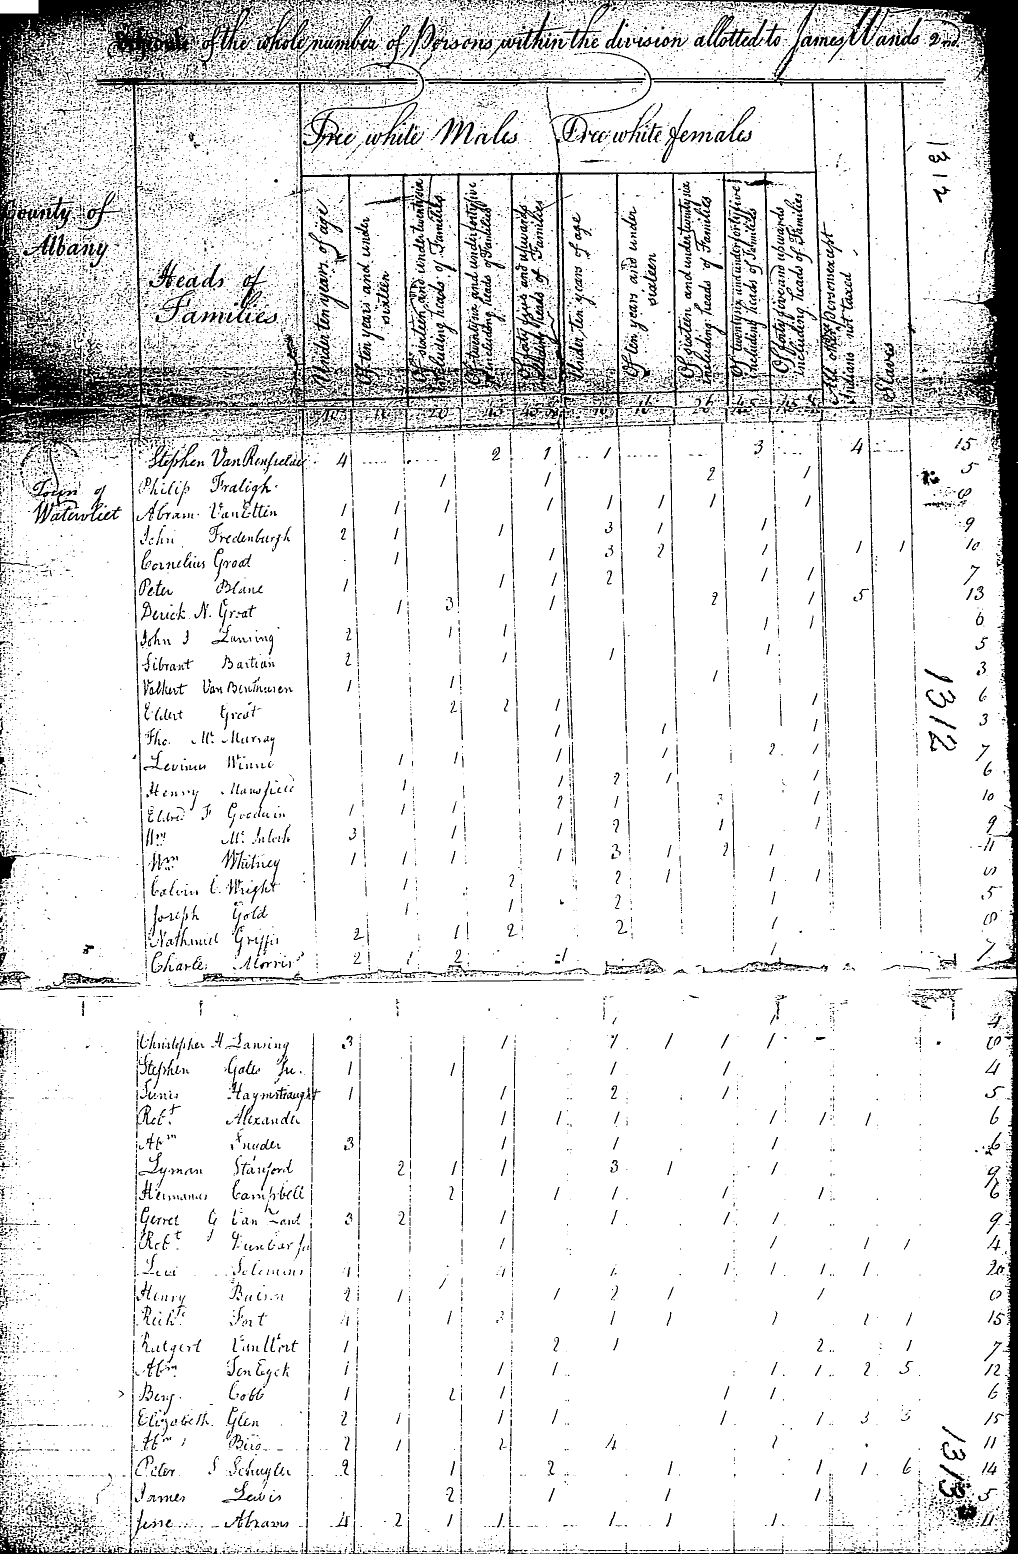 Schedule of the whole number of Persons within the division allotted to James Wands 2nd
Free white Males Free white females
County of Albany
Heads of Families
Under ten years of age
Of ten years and under sixteen
Of sixteen and under twenty six including heads of Families
Of twenty six and under forty five including heads of Families
Of forty five and upwards including Heads of Families
Under ten years of age
Of ten years and under sixteen
Of sixteen and under twenty six including heads of Families
Of twenty six and under forty five including heads of Families
Of forty five and upwards including heads of Families
All other Persons except Indians not taxed
Slaves
1312
16 26 45 16 26 45
Town of Watervliet
Stephen Van Renselaer 4 2 1 1 3 4 15
Philip Fraligh 1 1 2 1 5
Abram Van Etten 1 1 1 1 1 1 1 1 8
John Fredenburgh 2 1 1 3 1 1 9
Cornelius Groot 1 1 3 2 1 1 1 10
Peter Blane 1 1 1 2 1 1 7
Derick N. Groat 1 3 1 2 1 5 13
John J Lansing 2 1 1 1 1 6
Sibrant Bastian 2 1 1 1 5
Volkert Van Benthusen 1 1 1 3
Eldert Groat 2 2 1 1 6
Tho. Mc Murray 1 1 1 3
Levinus Winne 1 1 1 1 2 1 7
Henry Mansfield 1 1 2 1 1 6
Eldred F Goodwin 1 1 1 2 1 3 1 10
Wm Mc Intosh 3 1 1 2 1 1 9
Wm Whitney 1 1 1 1 3 1 2 1 11
Calvin C. Wright 1 2 2 1 1 1 8
Joseph Gold 1 1 2 1 5
Nathaniel Griffis 2 1 2 2 1 8
Charles Morris 2 1 2 1 1 7
1312
1 1 4
Christopher H Lansing 3 1 1 1 1 8
Stephen Gates Ju. 1 1 1 1 4
Tunis Haymstraught 1 1 2 1 5
Robt. Alexander 1 1 1 1 1 1 6
Abm Snyder 3 1 1 1 6
Lyman Stanford 2 1 1 3 1 1 9
Hermanus Campbell 2 1 1 1 1 6
Gerret G Van Zant 3 2 1 1 1 1 9
Robt. J Dunbar Ju 1 1 1 1 4
Levi Solomons 4 1 1 1 1 20
Henry Bacon 2 1 1 1 2 1 1
Richd. Fort 4 1 3 1 1 2 2 1 15
Rutgert Van Wort 1 2 1 2 1 7
Abm. Ten Eyck 1 1 1 1 1 2 5 12
Benj. Cobb 1 2 1 1 1 6
Elizabeth Glen 2 1 1 1 1 1 3 15
Abm 2 1 2 4 2 11
Peter S Schuyler 2 1 2 1 1 1 6 14
James Lewis 2 1 1 1 5
Jesse Abrams 4 2 1 1 1 1 1 11
1313